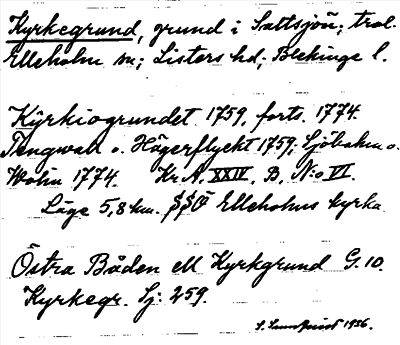 Kyrkegrund, grund i Saltsjön; trol.
Elleholm sn; Listers hd; Blekinge l.
Kyrkiogrundet 1759, forts. 1774.
Tengwall o. Högerflycht 1759; Sjöbohm o.
Wohn 1774. Kr.A. XXIV, B, N:o VI.
Läge 5,8 km. SSÖ Elleholms kyrka
Östra Båden ell Kyrkgrund G. 10.
Kyrkegr. Sj: 259.
1956.